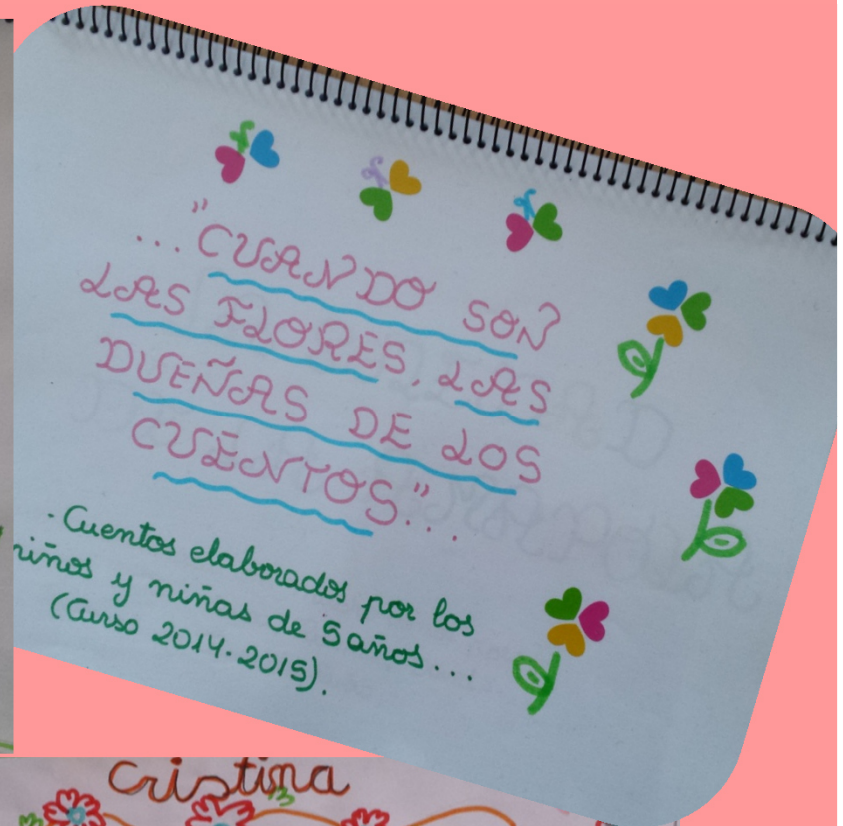 ..."CUANDO SON
LAS FLORES, LAS
DUEÑAS DE LOS
CUENTOS"...
. Cuentos elaborados por los
niños y niñas de 5 años...
(Curso 2014-2015).
Cristina